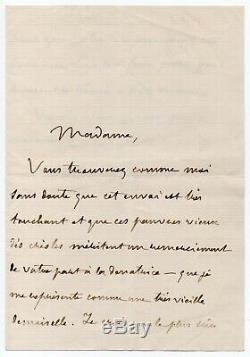 Madame,
Vous trouverez comme moi
sans doute que cet envoi est très
touchant et que ces pauvres vieux
dés méritent un remerciement
de votre part à la donatrice — que je
me représente comme une très vieille
demoiselle. Je le plus